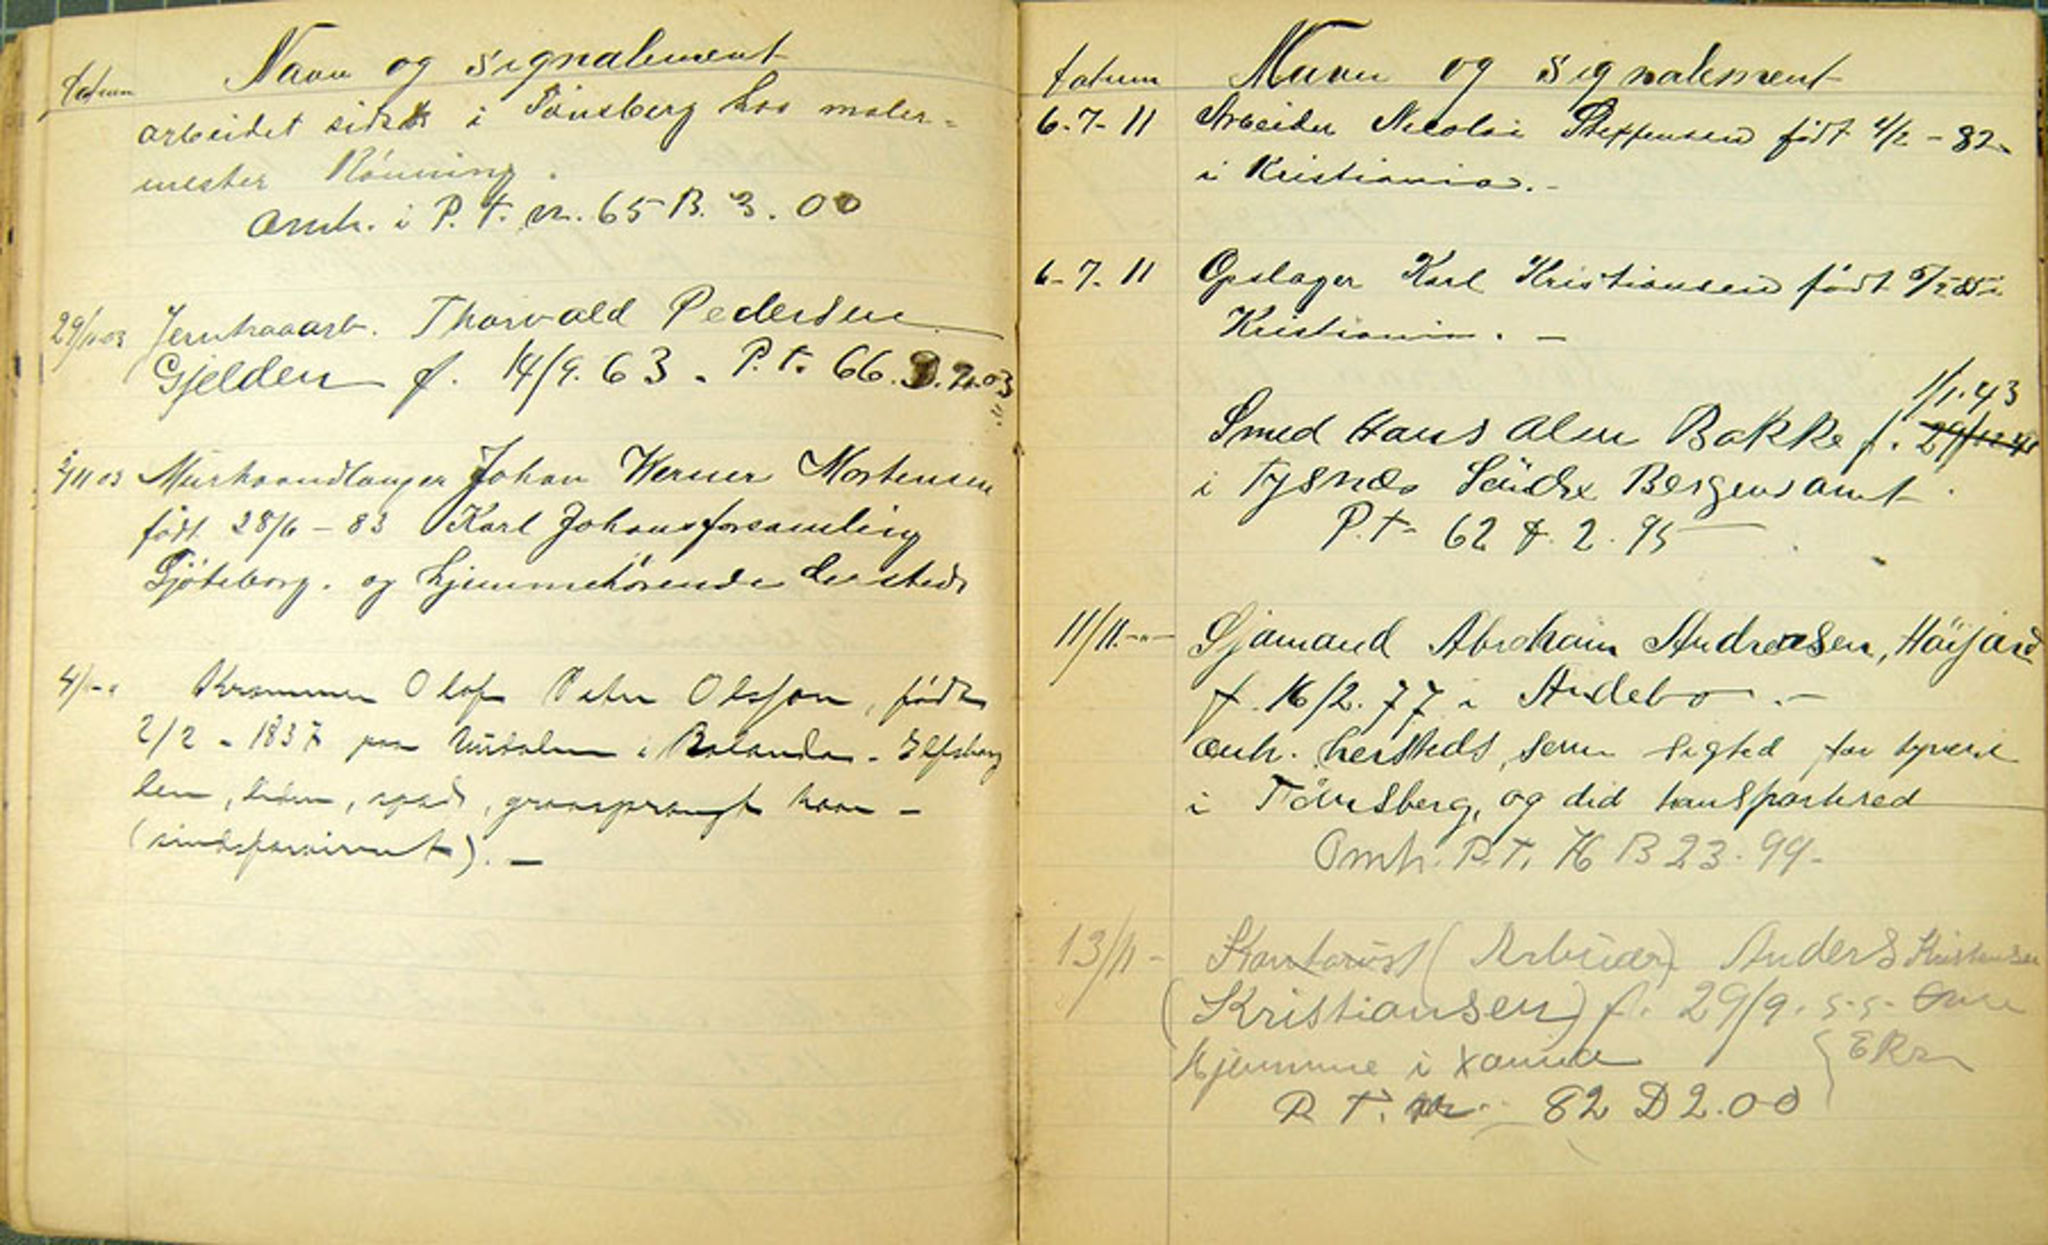 datum Navn og signalement
arbeidet sidst i Tönsberg hos maler-
mester Rönning.
Omh. i P. T. nr. 65 B. 3. 00
Jernhaaarb. Thorvald Pedersen
Gjelden f. 14/9. 63. P. t. 66. 03
11 03 Murhaandlanger Johan Werner Mortensen
födt 28/6 - 83 Karl Johansforsamling
Gjöteborg. og hjemmehörende dersteds
4/ Kræmmer Olof Peter Olsson, födt
2/2 - 1837 paa i Bolanda - Elfsborg
len, liden, graasprængt haar -
datum Navn og signalement
6-7-11 Arbeider Nicolai Steffensen födt 4/2 - 82
i Kristiania. -
6-7-11 Opslager Karl Kristiansen födt 5/2 85 i
Kristiania. -
1/1. 43
Smed Hans Olsen Bakke f. 29/12 41
i Tysnæs Söndre Bergens amt.
P. t. 62 2. 95
11/11 -"- Sjømand Abraham Andreasen, Höijord
f. 16/2. 77 i Andebo. -
anh. hersteds, som sigted for tyveri
i Tönsberg, og did transportered
Omh. P. T. H B 23. 99.
13/11 - Kontorist (Arbeider) Anders Kristensen
(Kristiansen) f. 29/9. 55.
Hjemme i Xania
P. T. nr 82 D 2.00